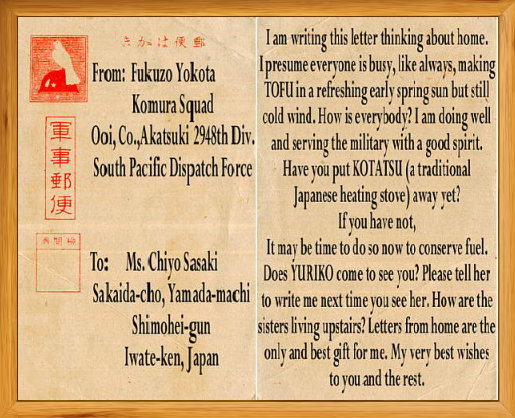 郵便はがき
軍事郵便
From: Fukuzo Yokota
Komura Squad
Ooi, Co.,Akatsuki 2948th Div.
South Pacific Dispatch Force
To: Ms. Chiyo Sasaki
Sakaida-cho, Yamada-machi
Shimohei-gun
Iwate-ken, Japan
I am writing this letter thinking about home.
I presume everyone is busy, like always, making
TOFU in a refreshing early spring sun but still
cold wind. How is everybody? I am doing well
and serving the military with a good spirit.
Have you put KOTATSU (a traditional
Japanese heating stove) away yet?
If you have not,
It may be time to do so now to conserve fuel.
Does YURIKO come to see you? Please tell her
to write me next time you see her. How are the
sisters living upstairs? Letters from home are the
only and best gift for me. My very best wishes
to you and the rest.